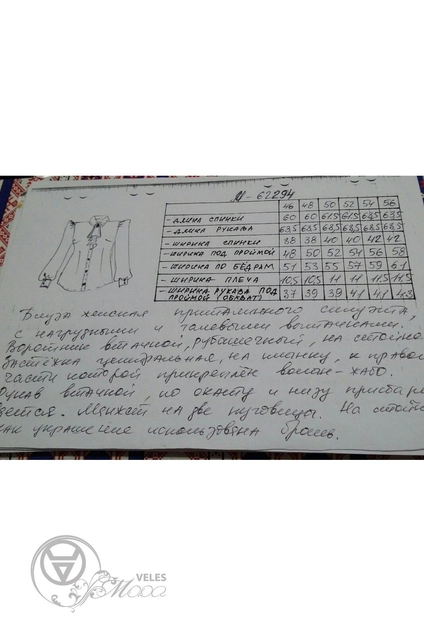 М-62294
46 48 50 52 54 56
- ДЛИНА СПИНКИ 60 60 61.5 61.5 63.5 63.5
- ДЛИНА РУКАВА 63.5 63.5 63.5 63.5 63.5 63.5
- ШИРИНА СПИНКИ 38 38 40 40 42 42
- ШИРИНА ПОД ПРОЙМОЙ 48 50 52 54 56 58
- ШИРИНА ПО БЁДРАМ 51 53 55 57 59 61
- ШИРИНА ПЛЕЧА 10,5 10,5 11 11 11.5 11.5
- ШИРИНА РУКАВА ПОД
ПРОЙМОЙ (ОБХВАТ) 37 39 39 41 41 43
Блуза женская приталенного силуэта,
с нагрудными и талевыми вытачками.
Воротник втачной, рубашечный, на стойке
Застёжка центральная, на планку, к правой
части которой прикреплён волан-жабо.
Рукав втачной, по окату и низу присбари
вается. Манжет на две пуговицы. На стойке
как украшение использована брошь.
VELES
Moda